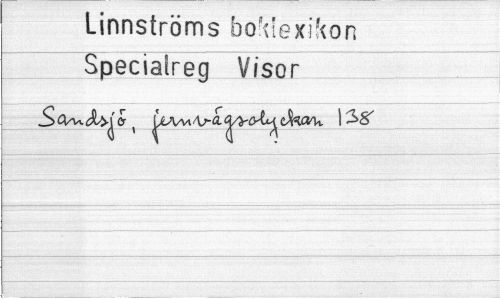 Linnströms boklexikon
Specialreg Visor
Sandsjö, jernvägsolyckan 138